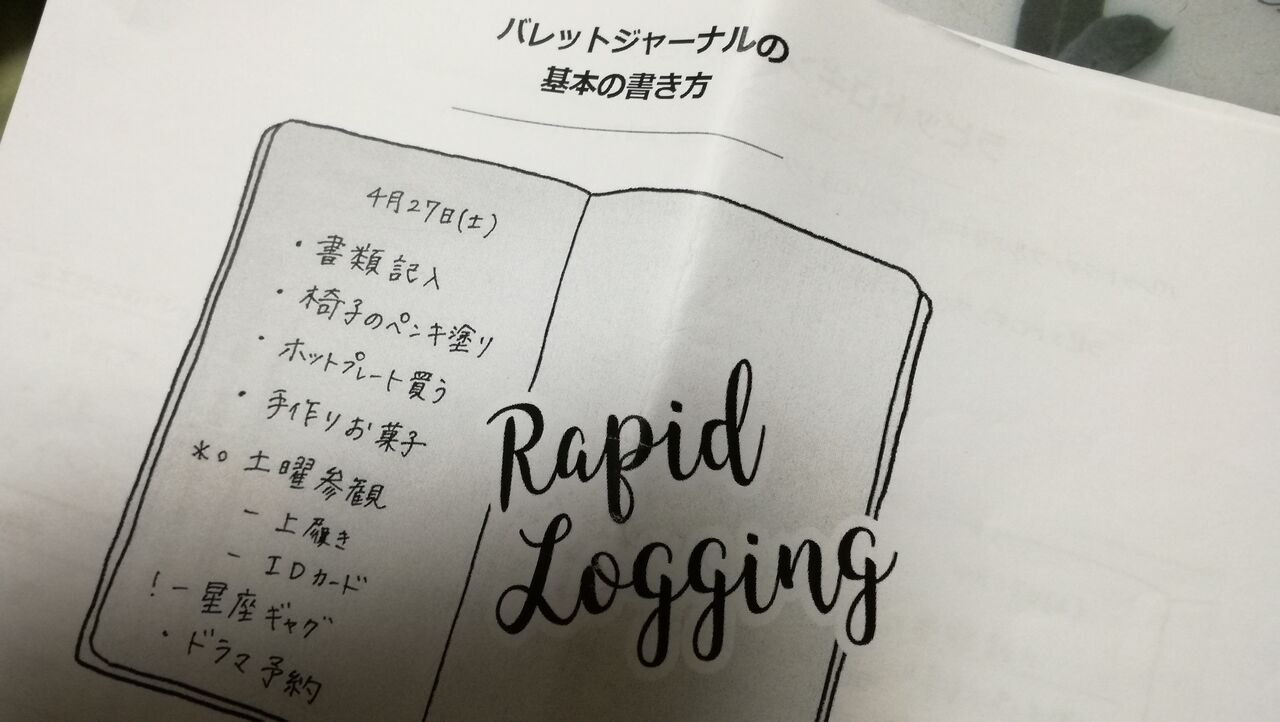 バレットジャーナルの
基本の書き方
4月27日(土)
・書類記入
・椅子のペンキ塗り
・ホットプレート買う
・手作りお菓子
*○ 土曜参観
- 上履き
- IDカード
! - 星座ギャグ
・ドラマ予約
Rapid
Logging